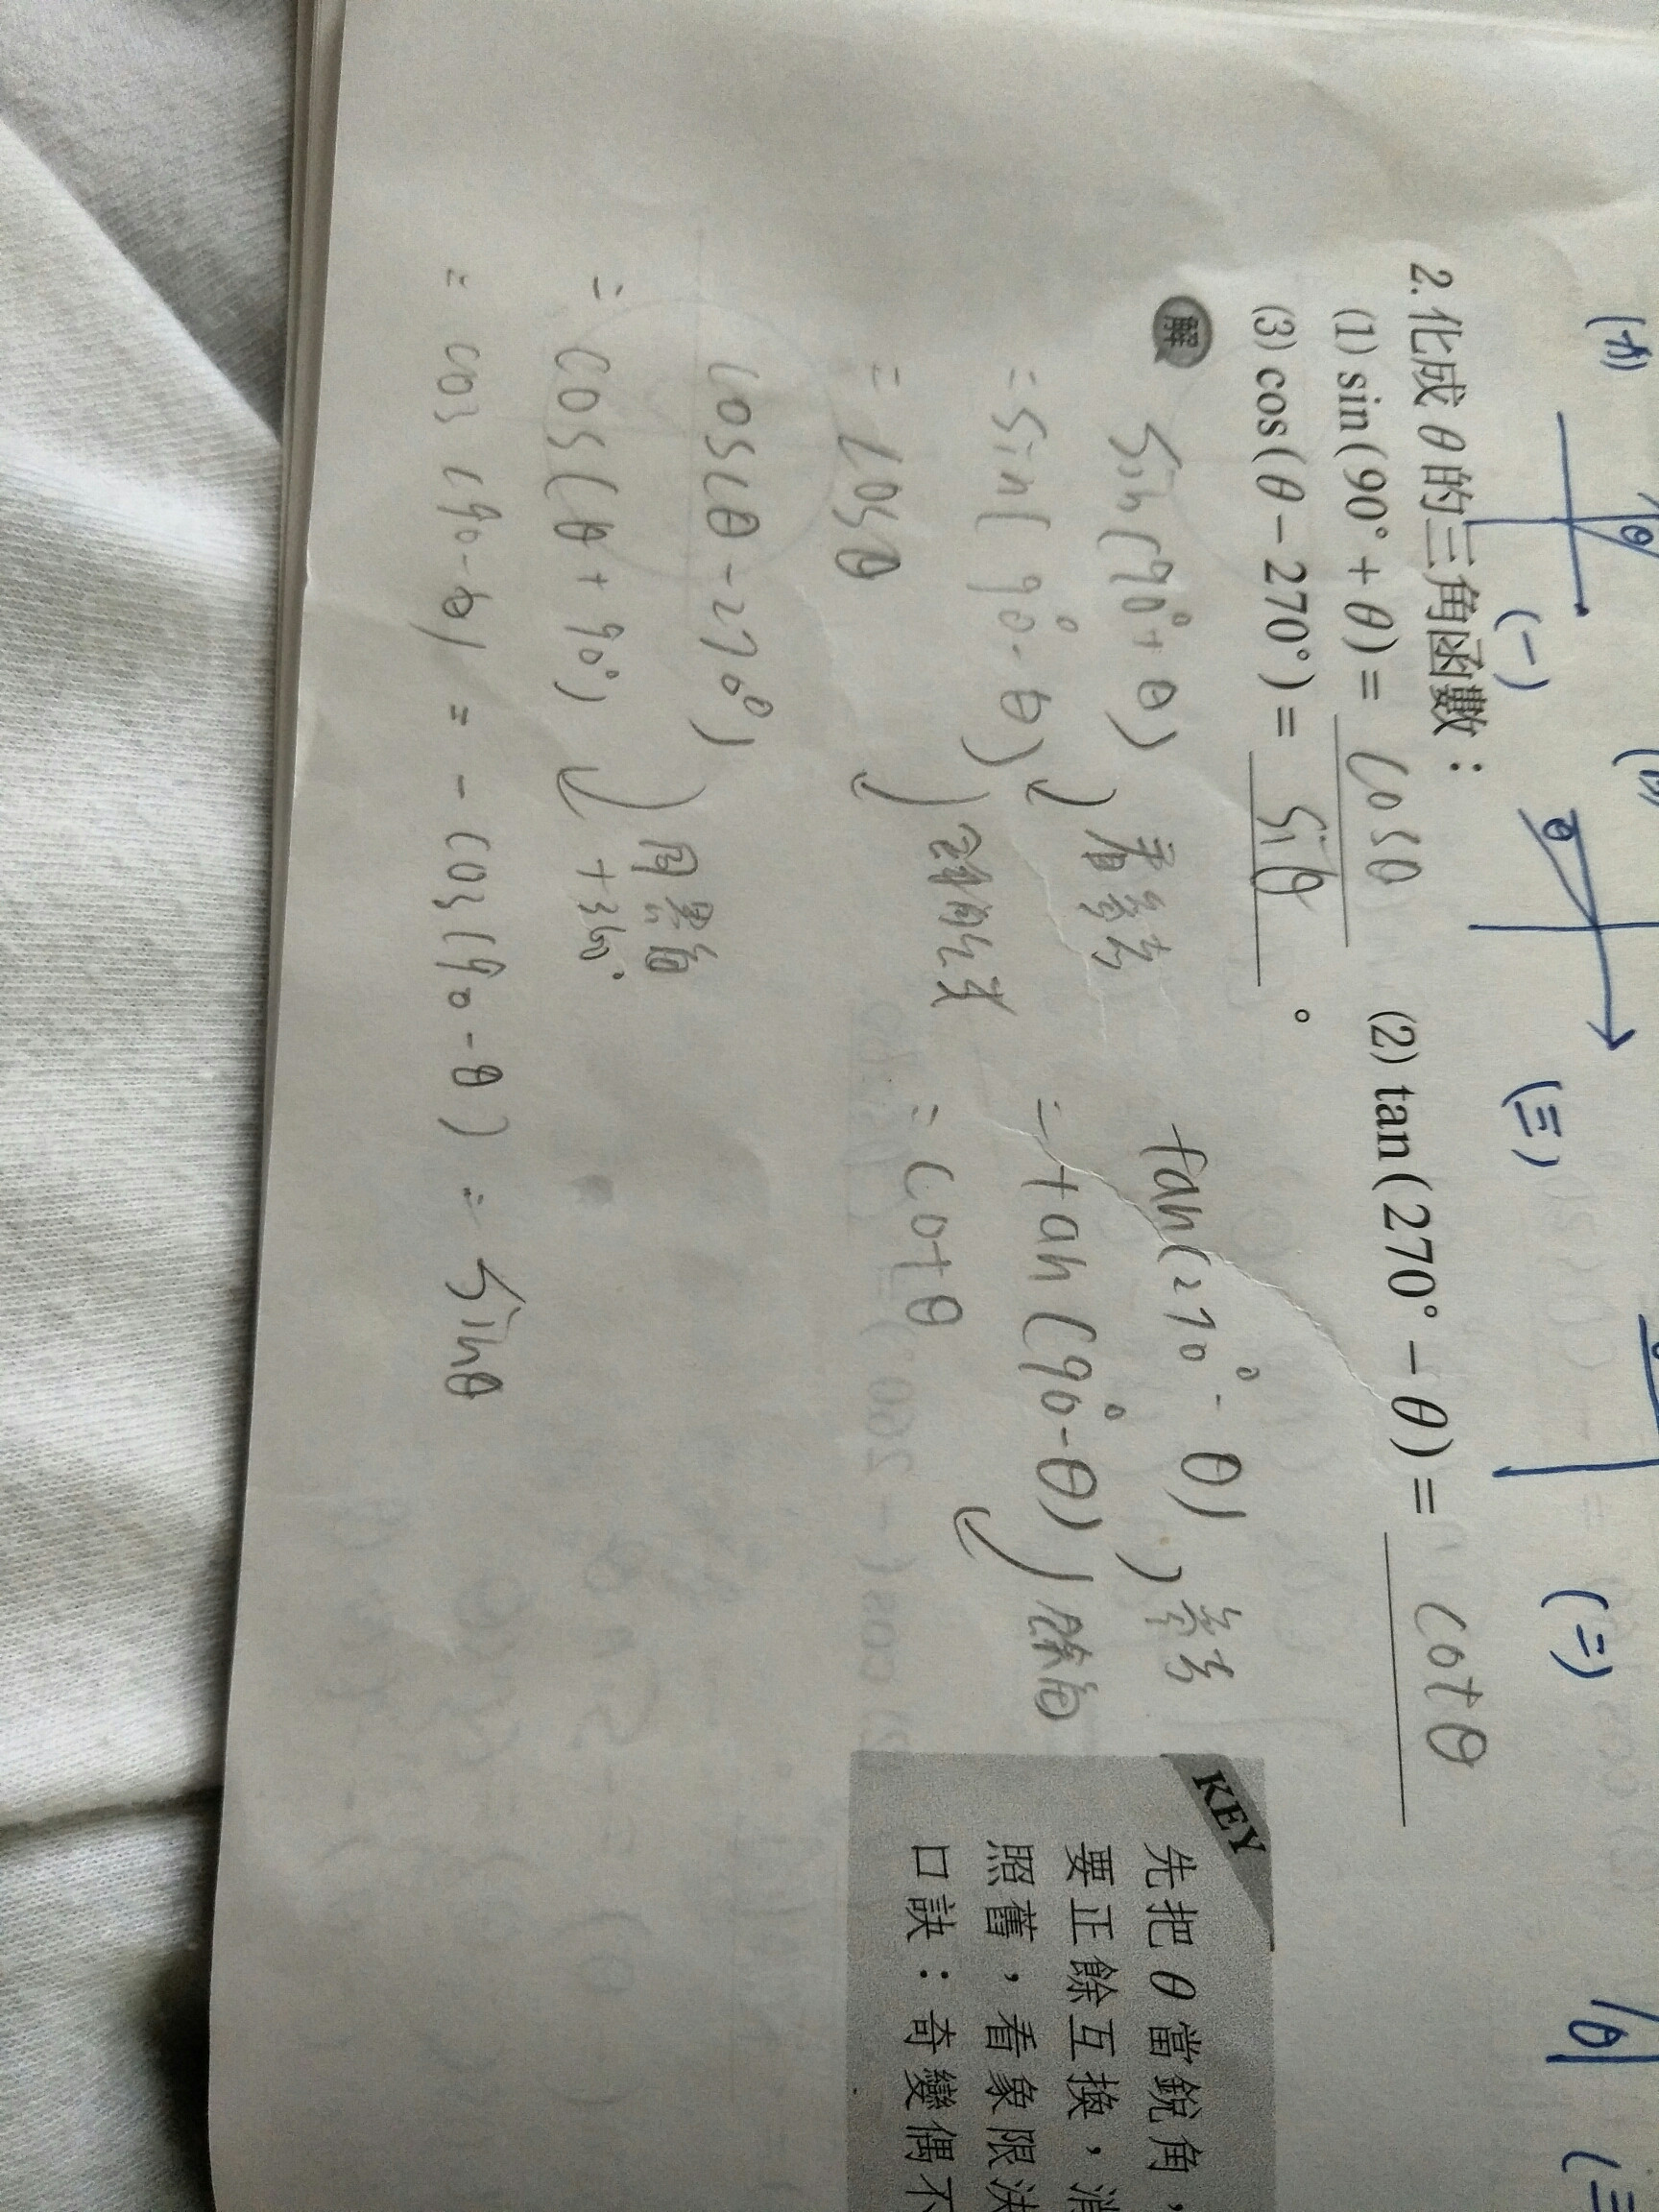 (一)
(三)
(二)
2.化成θ的三角函數：
(1) sin(90°+θ)= cosθ (2) tan(270°−θ)= cotθ
(3) cos(θ−270°)= siθ 。
解
sin(90°+θ)
=sin(90°-θ)
=cosθ
tan(270°-θ)
=tan(90°-θ) 餘角
=cotθ
cos(θ-270°)
=cos(θ+90°) 同界角
+360°
=cos(90-θ)=-cos(90-θ)=sinθ
KEY
先把θ當銳角，
要正餘互換，消
照舊，看象限決
口訣：奇變偶不